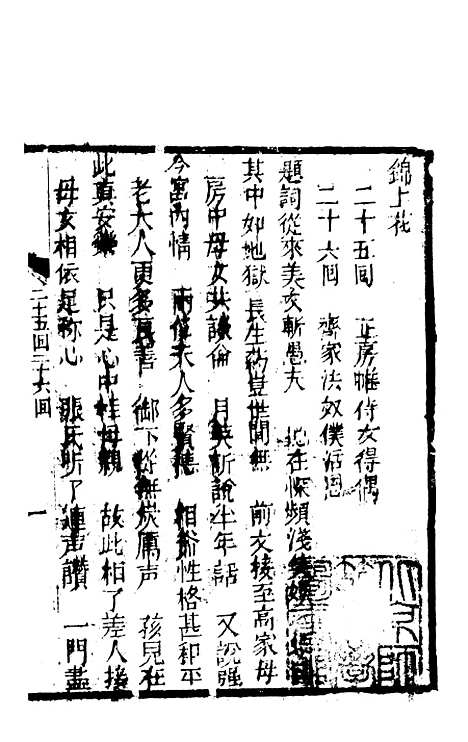 錦上花
二十五回 正房帷侍女得偶
二十六回 齊家法奴僕沾恩
題詞從來美女斬愚夫 地在深頻淺
其中如地獄長生薬豈世間無 前文接至高家母
房中母女共談論 月英訴說半年話 又說強
今寓內情 兩位夫人多賢惠 相爺性格甚和平
老大人更多良善 御下從無炭厲声 孩兒在
此真安樂 只是心中掛母親 故此相了差人接
母女相依是称心 張氏听了連声讚 一門盡
二十五回二十六回
一